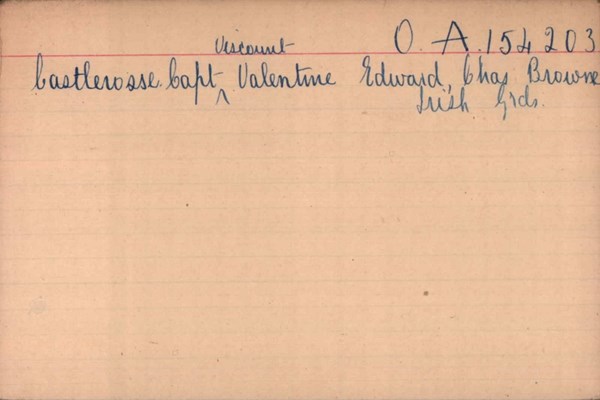 Viscount O. A. 154203
Castlerosse. Capt ^ Valentine Edward, Chas Browne
Irish Grds.